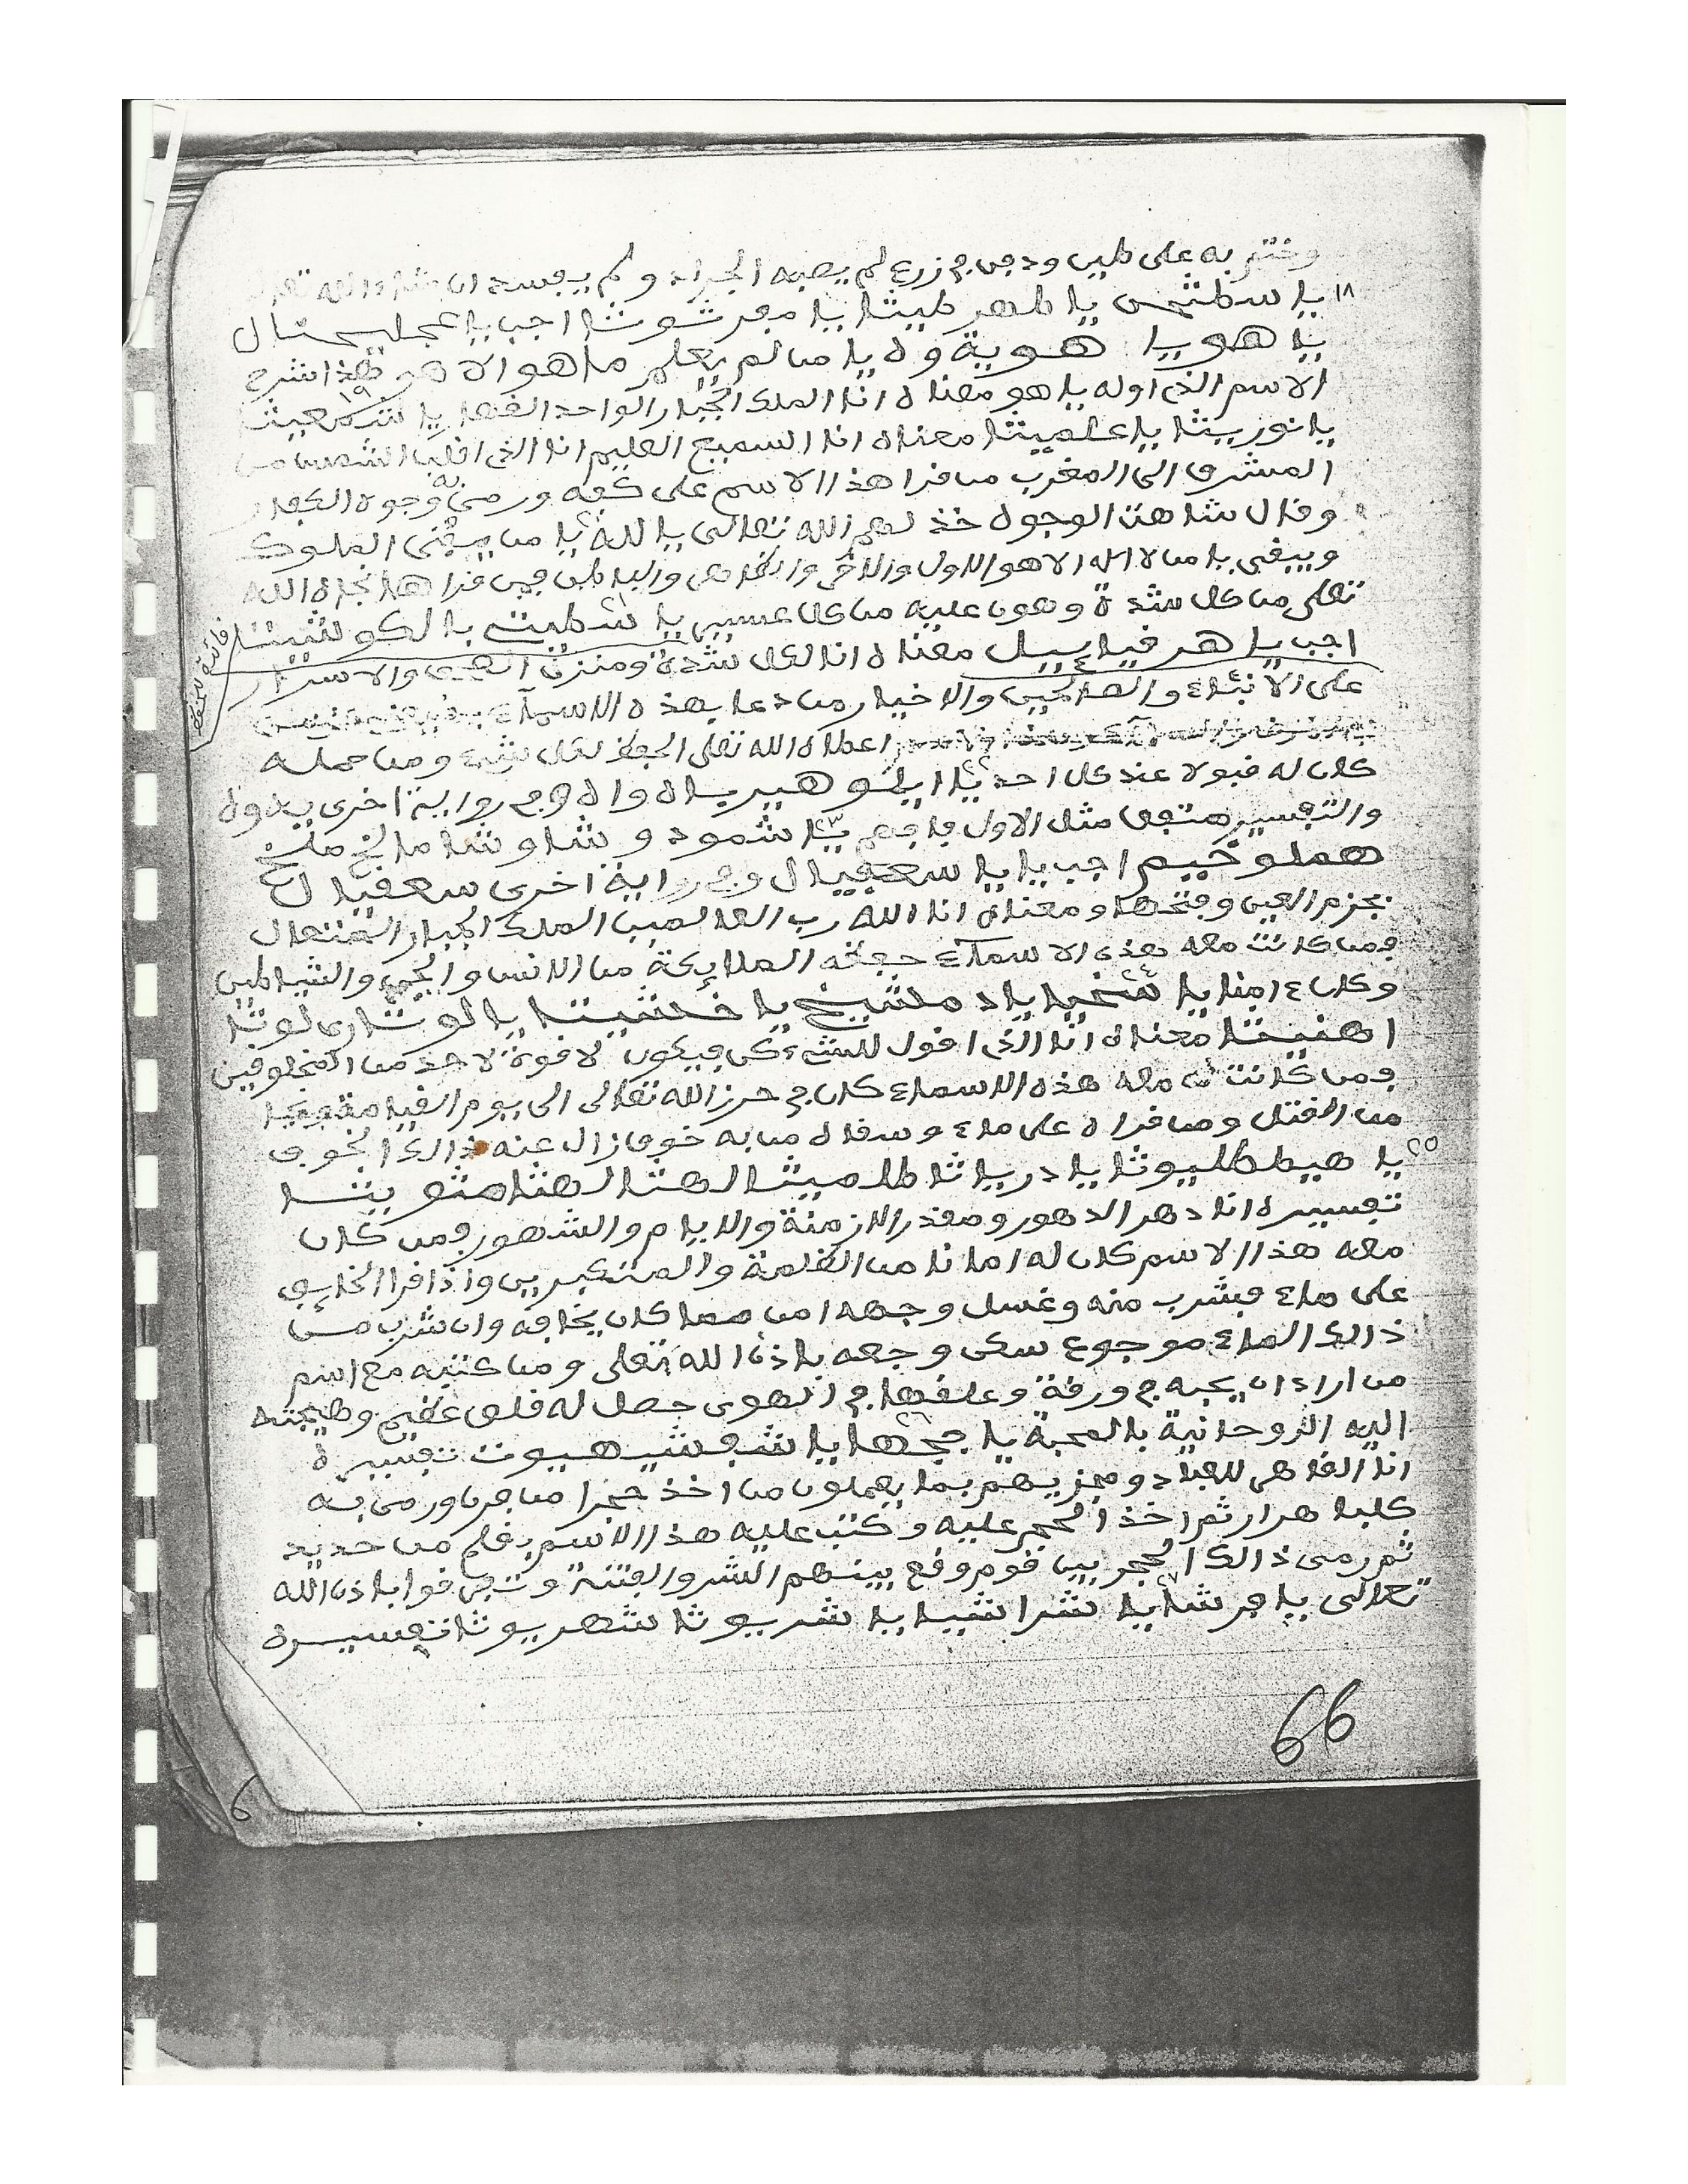 وختم به على طين ودفن في زرع لم يصبه الجراد ولم يفسد ان شاء الله
١٨ يا سطثحى يا طهر طيثا يا مفر شوثا اجب يا
يا هويا هوية وه يا من لم يعلم ما هو الا هو هذا شرح
الاسم الذى اوله يا هو معناه انا الملك الجبار الواحد القهار ١٩ يا شمعيثا
يا نوريثا يا علميثا معناه انا السميع العليم انا الذى اقلب الشمس من
المشرق الى المغرب من قرا هذا الاسم على كفه ورمى به وجوه الكفار
وقال شاهت الوجوه خذلهم الله تعالى يا لله يا من يفنى الملوك
ويبقى يا من لا اله الا هو الاول والاخر والظاهر والباطن فمن قرا هذا نجاه الله
تعلى من كل شدة وهون عليه من كل عسير يا شطيث يا لكو شيثا
اجب يا هر قيا ييل معناه انا لكل شدة ومنزل الصحف والاسرار
على الانبياء والصالحين والاخيار من دعا بهذه الاسماء
اعطاه الله تعلى الحفظ لكل شىء ومن حمله
كان له قبولا عند كل احد ٢٢ يا ايلو هير ياه واه وفي رواية اخرى يه وه
والتفسير متفق مثل الاول فافهم ٢٣ يا شمود وشاوشا مالخ ملخ
هملو خيم اجب يا يا سعفيال وفي رواية اخرى سعفيال
بجزم العين وفتحها ومعناه انا الله رب العالمين الملك الجبار المتعال
فمن كانت معه هذه الاسماء حفظه الملايكة من الانس والجن والشياطين
وكان ءامنا ٢٤ يا شخيا يا د مشيخ يا خشيثا يا لوشارى لوثا
اهنيثا معناه انا الذى اقول للشىء كن فيكون لا قوة لاحد من المخلوقين
فمن كانت معه هذه الاسماء كان في حرز الله تعالى الى يوم القيامة ونجا
من القتل ومن قراه على ماء وسقاه من به خوف زال عنه ذالك الخوف
٢٥ يا هيططليوثا يا در ياثا طلميثا لهثا لهثا مثو يثا
تفسيره انا دهر الدهور ومقدر الازمنة والايام والشهور فمن كان
معه هذا الاسم كان له امانا من الظلمة والمتكبرين واذا قرا الخايف
على ماء فشرب منه وغسل وجهه امن مما كان يخافه وان شرب من
ذالك الماء موجوع سكن وجعه باذن الله تعلى ومن كتبه مع اسم
من اراد ان يحبه في ورقة وعلقها في الهوى حصل له قلق عظيم وهيجته
اليه الروحانية بالمحبة ٢٦ يا جحها يا شفشيهيوت تفسيره
انا القاهر للعباد ومجزيهم بما يعملون من اخذ حجرا من فرن ورمى به
كلبا هرار ثم اخذ الحجر عليه وكتب عليه هذا الاسم بقلم من حديد
ثم رمى ذالك الحجر بين قوم وقع بينهم الشر والفتنة وتفرقوا باذن الله
تعالى ٢٧ يا فرشا يا شرا شيا يا شريوثا شهريوثا تفسيره
66
6